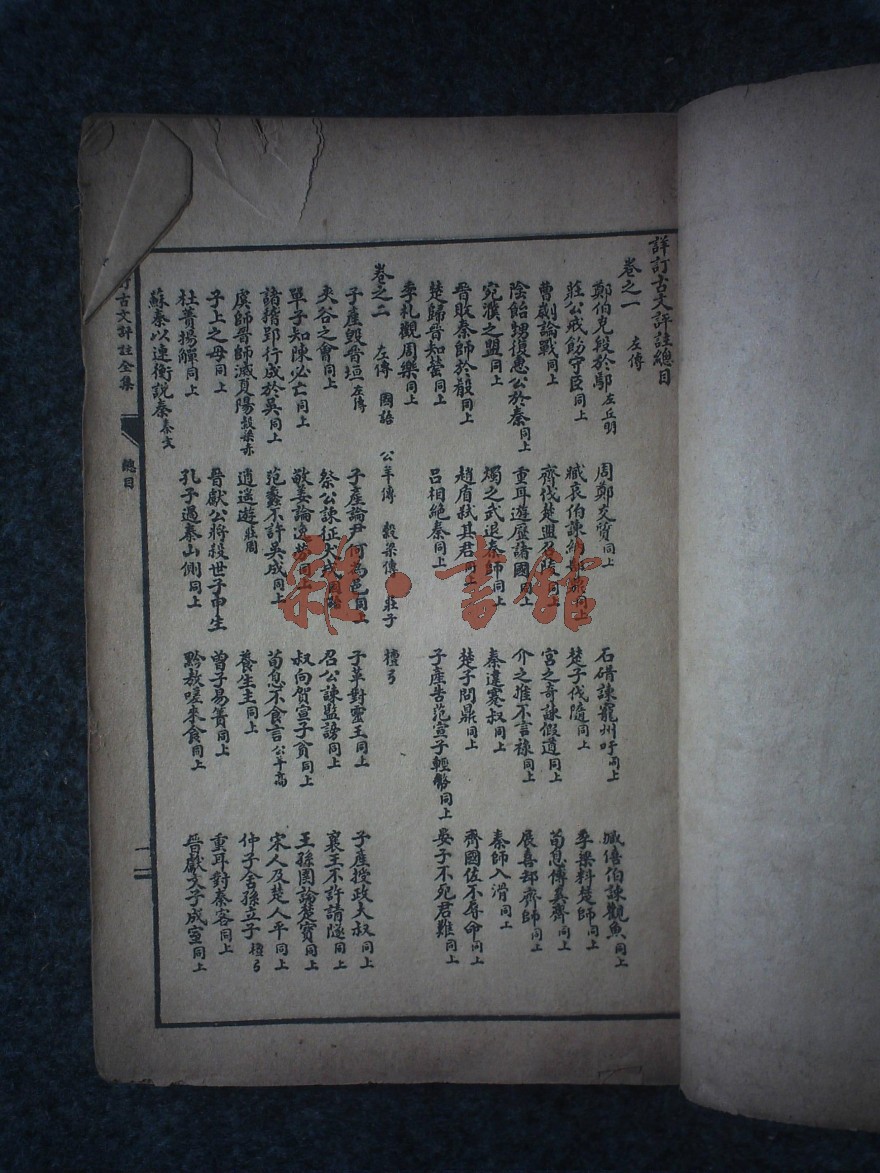 詳訂古文評註總目
卷之一 左傳
鄭伯克段於鄢左丘明 周鄭交質同上 石碏諫寵州吁同上 臧僖伯諫觀魚同上
莊公戒飭守臣同上 臧哀伯諫納郜鼎同上 楚子伐隨同上 季梁料楚師同上
曹劌論戰同上 齊伐楚盟召陵同上 宮之奇諫假道同上 荀息傅奚齊同上
陰飴甥復惠公於秦同上 重耳遊歷諸國同上 介之推不言祿同上 展喜却齊師同上
宛濮之盟同上 燭之武退秦師同上 秦違蹇叔同上 秦師入滑同上
晉敗秦師於殽同上 趙盾弒其君同上 楚子問鼎同上 齊國佐不辱命同上
楚歸晉知罃同上 呂相絕秦同上 子產告范宣子輕幣同上 晏子不死君難同上
季札觀周樂同上
卷之二 左傳 國語 公羊傳 穀梁傳 莊子 檀弓
子產毀晉垣左傳 子產論尹何為邑同上 子革對靈王同上 子產授政大叔同上
夾谷之會同上 祭公諫征犬戎國語 召公諫監謗同上 襄王不許請隧同上
單子知陳必亡同上 敬姜論逸勞同上 叔向賀宣子貧同上 王孫圉論楚寶同上
諸稽郢行成於吳同上 范蠡不許吳成同上 荀息不食言公羊高 宋人及楚人平同上
虞師晉師滅夏陽穀梁赤 逍遙遊莊周 養生主同上 仲子舍孫立子檀弓
子上之母同上 晉獻公將殺世子申生 曾子易簀同上 重耳對秦客同上
杜蕢揚觶同上 孔子過泰山側同上 黔敖嗟來食同上 晉獻文子成室同上
蘇秦以連衡說秦秦文
訂古文評註全集 總目 一
雜·書館